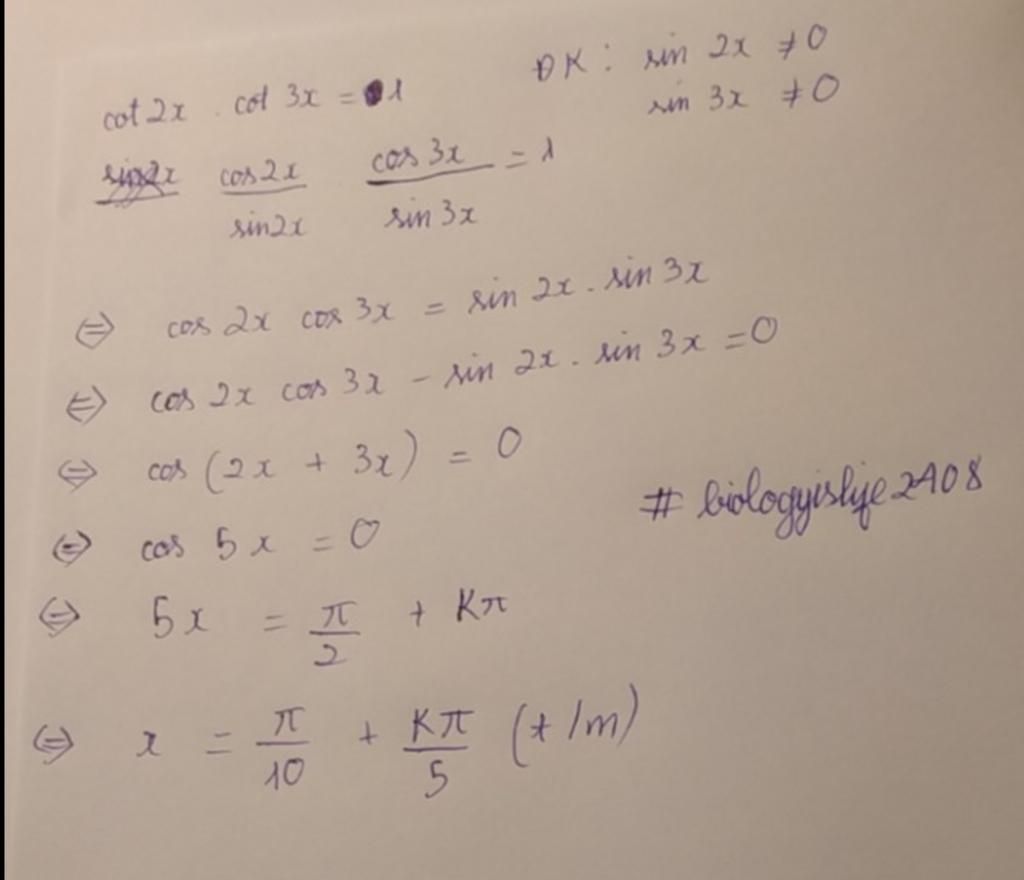 cot 2x . cot 3x = 1
ĐK : sin 2x ≠ 0
sin 3x ≠ 0
cos2x / sin2x . cos 3x / sin 3x = 1
⇔ cos 2x cos 3x = sin 2x . sin 3x
⇔ cos 2x cos 3x - sin 2x . sin 3x = 0
⇔ cos (2x + 3x) = 0
# biologyislife2408
⇔ cos 5x = 0
⇔ 5x = π/2 + Kπ
⇔ x = π/10 + Kπ/5 (t/m)